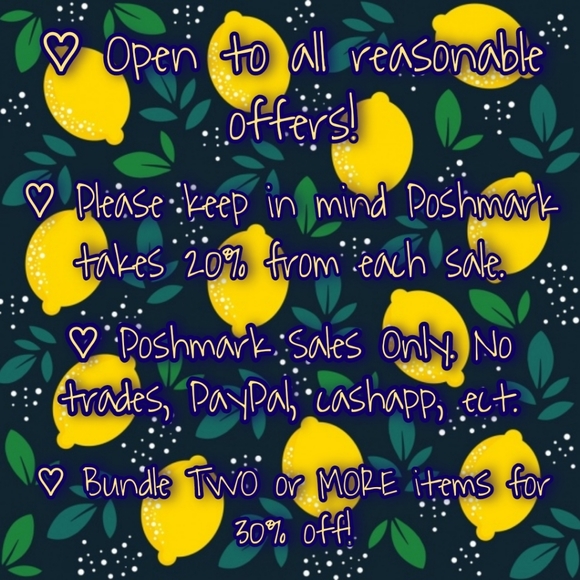 ♡ Open to all reasonable
offers!
♡ Please keep in mind Poshmark
takes 20% from each sale.
♡ Poshmark Sales Only. No
trades, PayPal, cashapp, ect.
♡ Bundle TWO or MORE items for
30% off!